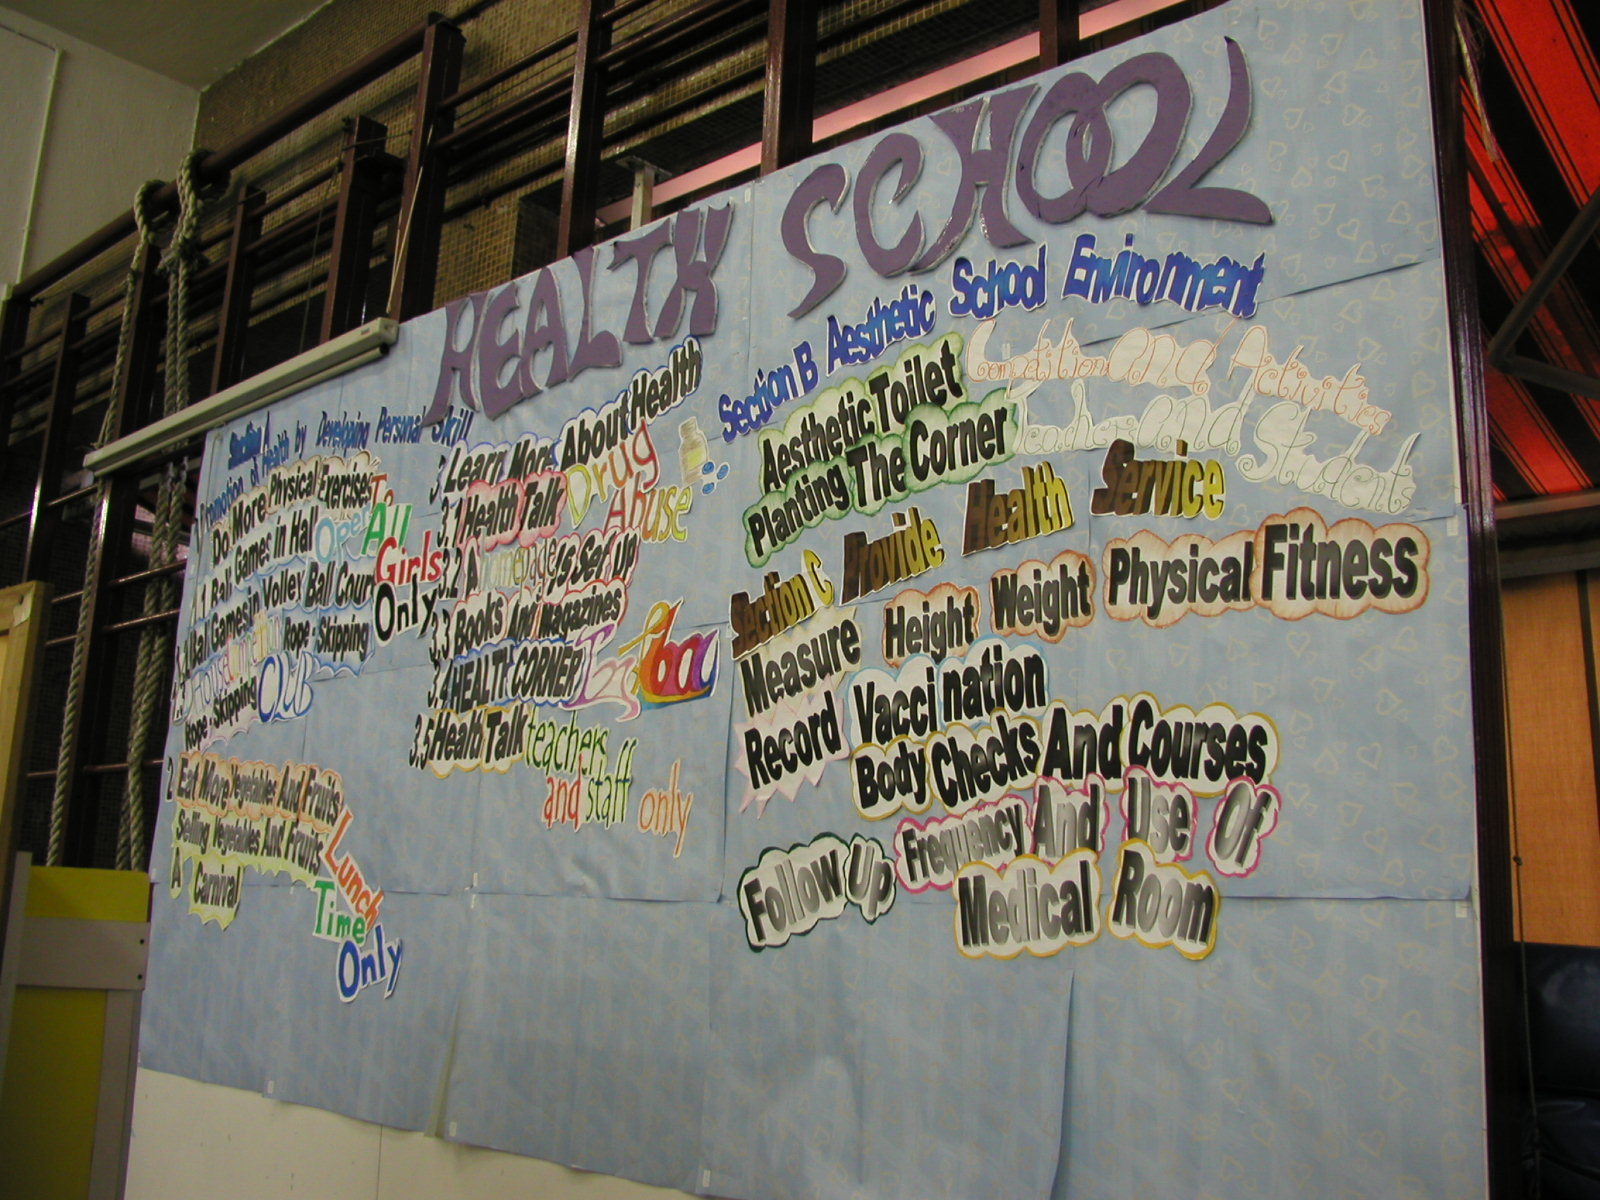 HEALTH SCHOOL
Section A
Promotion of Health by Developing Personal Skill
1 Do More Physical Exercises
1.1 Ball Games In Hall Open To All
Ball Games In Volley Ball Court Girls Only
Rope - Skipping
Rope - Skipping Club
2 Eat More Vegetables And Fruits
Selling Vegetables And Fruits Lunch Time Only
A Carnival
3 Learn More About Health
3.1 Health Talk Drug Abuse
3.2 A homepage is Set Up
3.3 Books And magazines
3.4 HEALTH CORNER
3.5 Health Talk teachers and staff only
Section B Aesthetic School Environment
Aesthetic Toilet Competition and Activities
Planting The Corner Teacher and Students
Section C Provide Health Service
Measure Height Weight Physical Fitness
Record Vaccination
Body Checks And Courses
Follow Up Frequency And Use Of
Medical Room